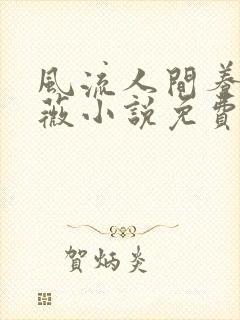 風流人間養
薇小說免費
賀炳炎